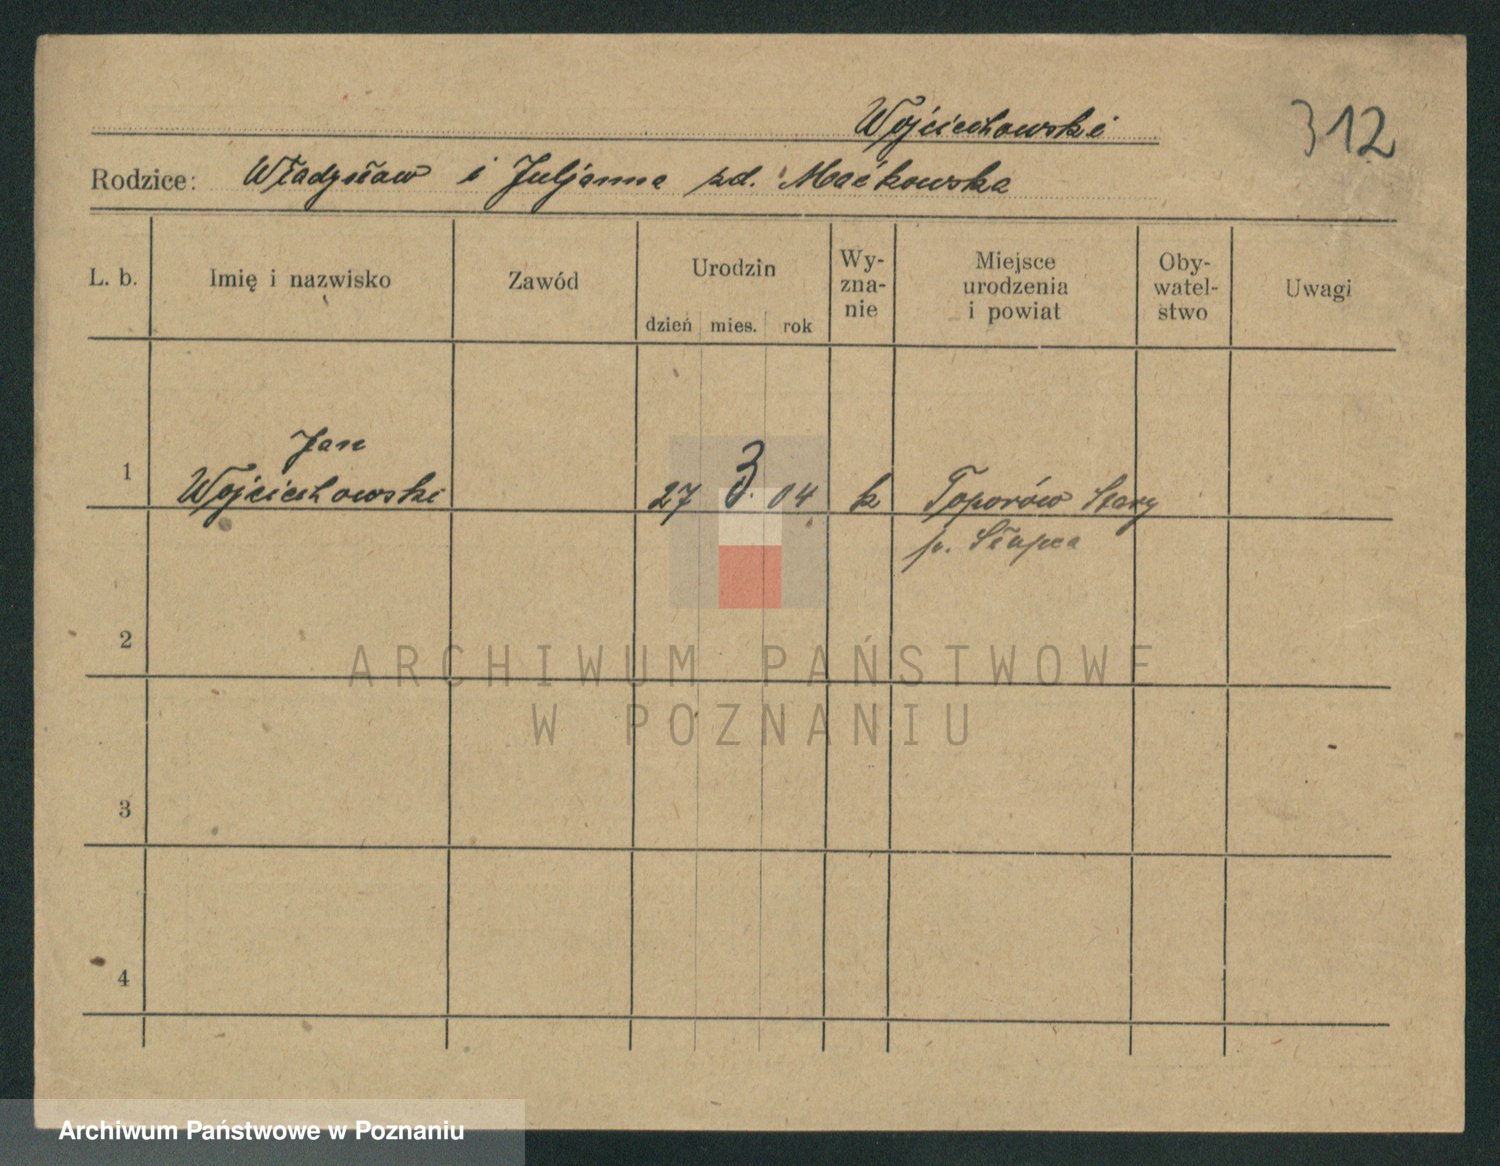 Wojciechowski
312
Rodzice: Władysław i Juljanna zd. Maćkowska
L. b.
Imię i nazwisko
Zawód
Urodzin
dzień mies. rok
Wy-
zna-
nie
Miejsce
urodzenia
i powiat
Oby-
watel-
stwo
Uwagi
Jan
1 Wojciechowski 27 3. 04 k Toporów Stary
p. Słupca
2
ARCHIWUM PAŃSTWOWE
W POZNANIU
3
4
Archiwum Państwowe w Poznaniu